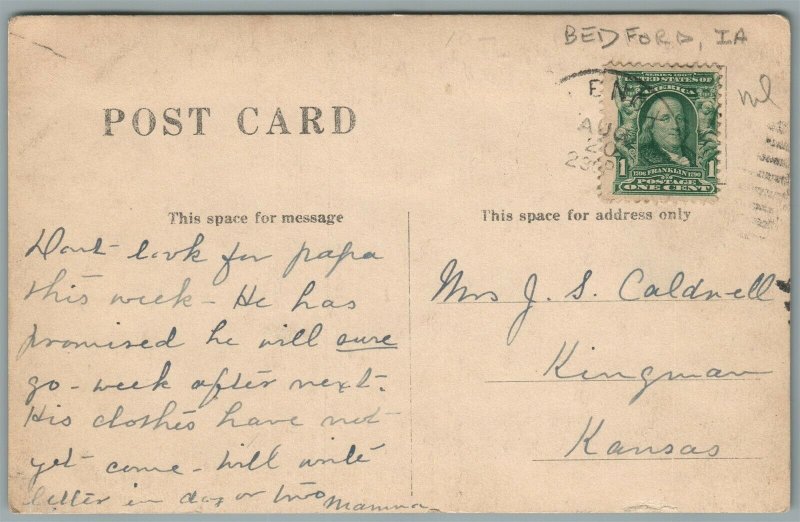 BEDFORD, IA
POST CARD
SERIES 1902
UNITED STATES OF
AMERICA
1706 FRANKLIN 1790
POSTAGE
1 ONE CENT 1
AUG
20
This space for message
This space for address only
Dont look for papa
this week - He has
promised he will sure
go - week after next.
His clothes have not
yet come - Will write
letter in day or two Mamma
Mrs J. S. Caldwell
Kingman
Kansas